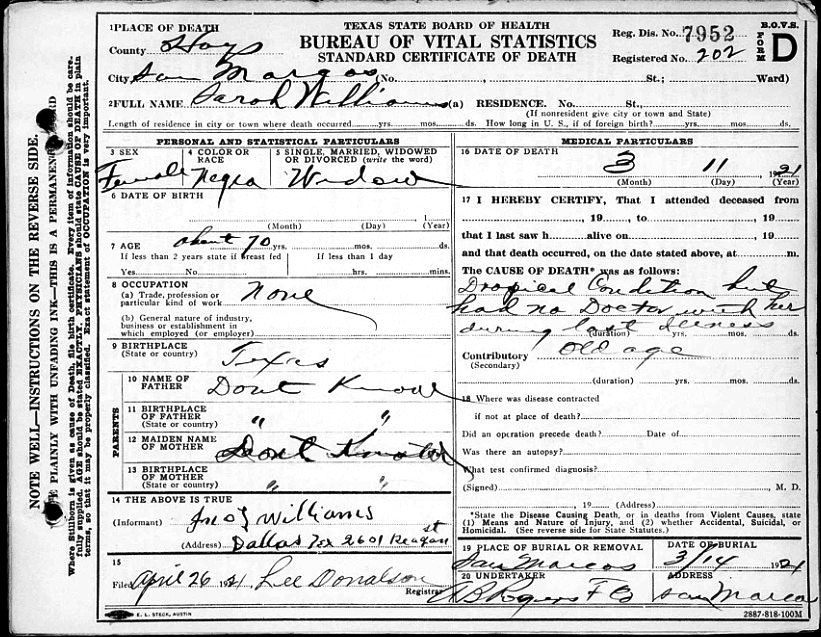 TEXAS STATE BOARD OF HEALTH
BUREAU OF VITAL STATISTICS
STANDARD CERTIFICATE OF DEATH
Reg. Dis. No. 7952
Registered No. 202
B.O.V.S.
FORM D
1 PLACE OF DEATH
County Hays
City San Marcos (No. , St.; Ward)
2 FULL NAME Sarah Williams (a) RESIDENCE. No. St.,
(If nonresident give city or town and State)
Length of residence in city or town where death occurred yrs. mos. ds. How long in U. S., if of foreign birth? yrs. mos. ds.
PERSONAL AND STATISTICAL PARTICULARS
3 SEX 4 COLOR or RACE 5 SINGLE, MARRIED, WIDOWED OR DIVORCED (write the word)
Female Negra Widow
6 DATE OF BIRTH
(Month) (Day) 1 (Year)
7 AGE about 70 yrs. mos. ds.
If less than 2 years state if breast fed If less than 1 day
Yes No hrs. mins.
8 OCCUPATION
(a) Trade, profession or
particular kind of work None
(b) General nature of industry,
business or establishment in
which employed (or employer)
9 BIRTHPLACE
(State or country) Texas
PARENTS
10 NAME OF
FATHER Dont Know
11 BIRTHPLACE
OF FATHER " "
(State or country)
12 MAIDEN NAME
OF MOTHER Dont Know
13 BIRTHPLACE
OF MOTHER " "
(State or country)
14 THE ABOVE IS TRUE
(Informant) Williams
(Address) Dallas Tex 2601 Reagan st
15
Filed April 26 1921 Lee Donalson
Registrar
MEDICAL PARTICULARS
16 DATE OF DEATH
3 11 1921
(Month) (Day) (Year)
17 I HEREBY CERTIFY, That I attended deceased from
, 19 , to , 19
that I last saw h alive on , 19
and that death occurred, on the date stated above, at m.
The CAUSE OF DEATH* was as follows:
Dropical Condition but
had no Doctor with her
during last Illness
(duration) yrs. mos. ds.
Contributory Old age
(Secondary)
(duration) yrs. mos. ds.
18 Where was disease contracted
if not at place of death?
Did an operation precede death? Date of
Was there an autopsy?
What test confirmed diagnosis?
(Signed) M. D.
, 19 (Address)
*State the Disease Causing Death, or in deaths from Violent Causes, state
(1) Means and Nature of Injury, and (2) whether Accidental, Suicidal, or
Homicidal. (See reverse side for State Statutes.)
19 PLACE OF BURIAL OR REMOVAL DATE OF BURIAL
San Marcos 3/14 1921
20 UNDERTAKER ADDRESS
A B Rogers F Co San Marcos
E. L. STECK, AUSTIN
2887-818-100M
NOTE WELL—INSTRUCTIONS ON THE REVERSE SIDE.
PLAINLY WITH UNFADING INK—THIS IS A PERMANENT
Where Stillborn is given as cause of Death, file birth certificate. Every item of information should be care-
fully supplied. AGE should be stated EXACTLY. PHYSICIANS should state CAUSE OF DEATH in plain
terms, so that it may be properly classified. Exact statement of OCCUPATION is very important.